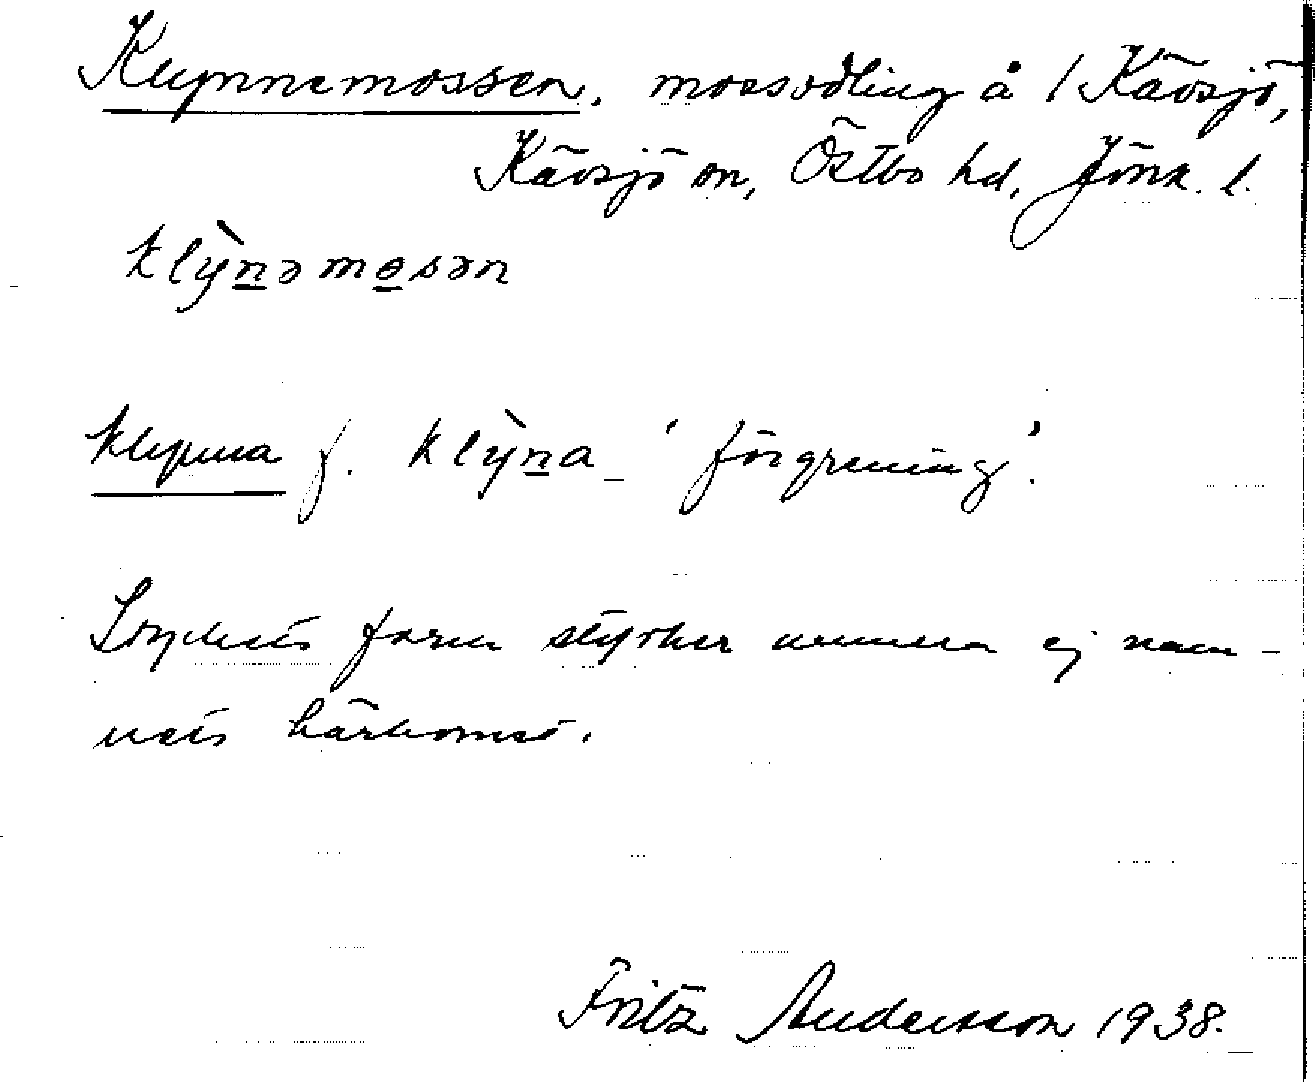 Klynnemossen, mossodling å 1 Kävsjö,
Kävsjö sn, Östbo hd, Jönk. l.
klỳnəmosən
klynna f. klỳna 'förgrening'.
Styckets form styrker numera ej nam-
nets härkomst.
Fritz Andersson 1938.